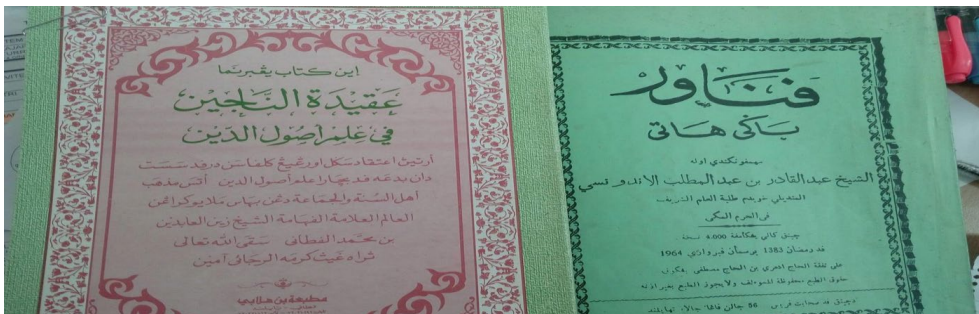 اين كتاب يڠبرنما
عقيدة الناجين
في علم أصول الدين
ارتين اعتقاد سكل اورڠ يڠ كلفاسن درفد سست
دان بدعه فد بچارا علم أصول الدين اتس مذهب
أهل السنة والجماعة دڠن بهاس ملايو كراڠن
العالم العلامة الفهامة الشيخ زين العابدين
بن محمد الفطاني سقى الله تعالى
ثراه غيث كرمه الرحماني آمين
مطبعة بن هلابي
فناور
باكي هاتي
الشيخ عبدالقادر بن عبدالمطلب الاندونسي
طلبة العلم الشريف
في الحرم المكي
چيتق كالي 4.000 نسخة
فد رمضان 1383 برسمأن فبرواري 1964
على نفقة الحاج بن الحاج مصطفى
حقوق الطبع محفوظة للمؤلف ولا يجوز الطبع بغير اذنه
86 جالن